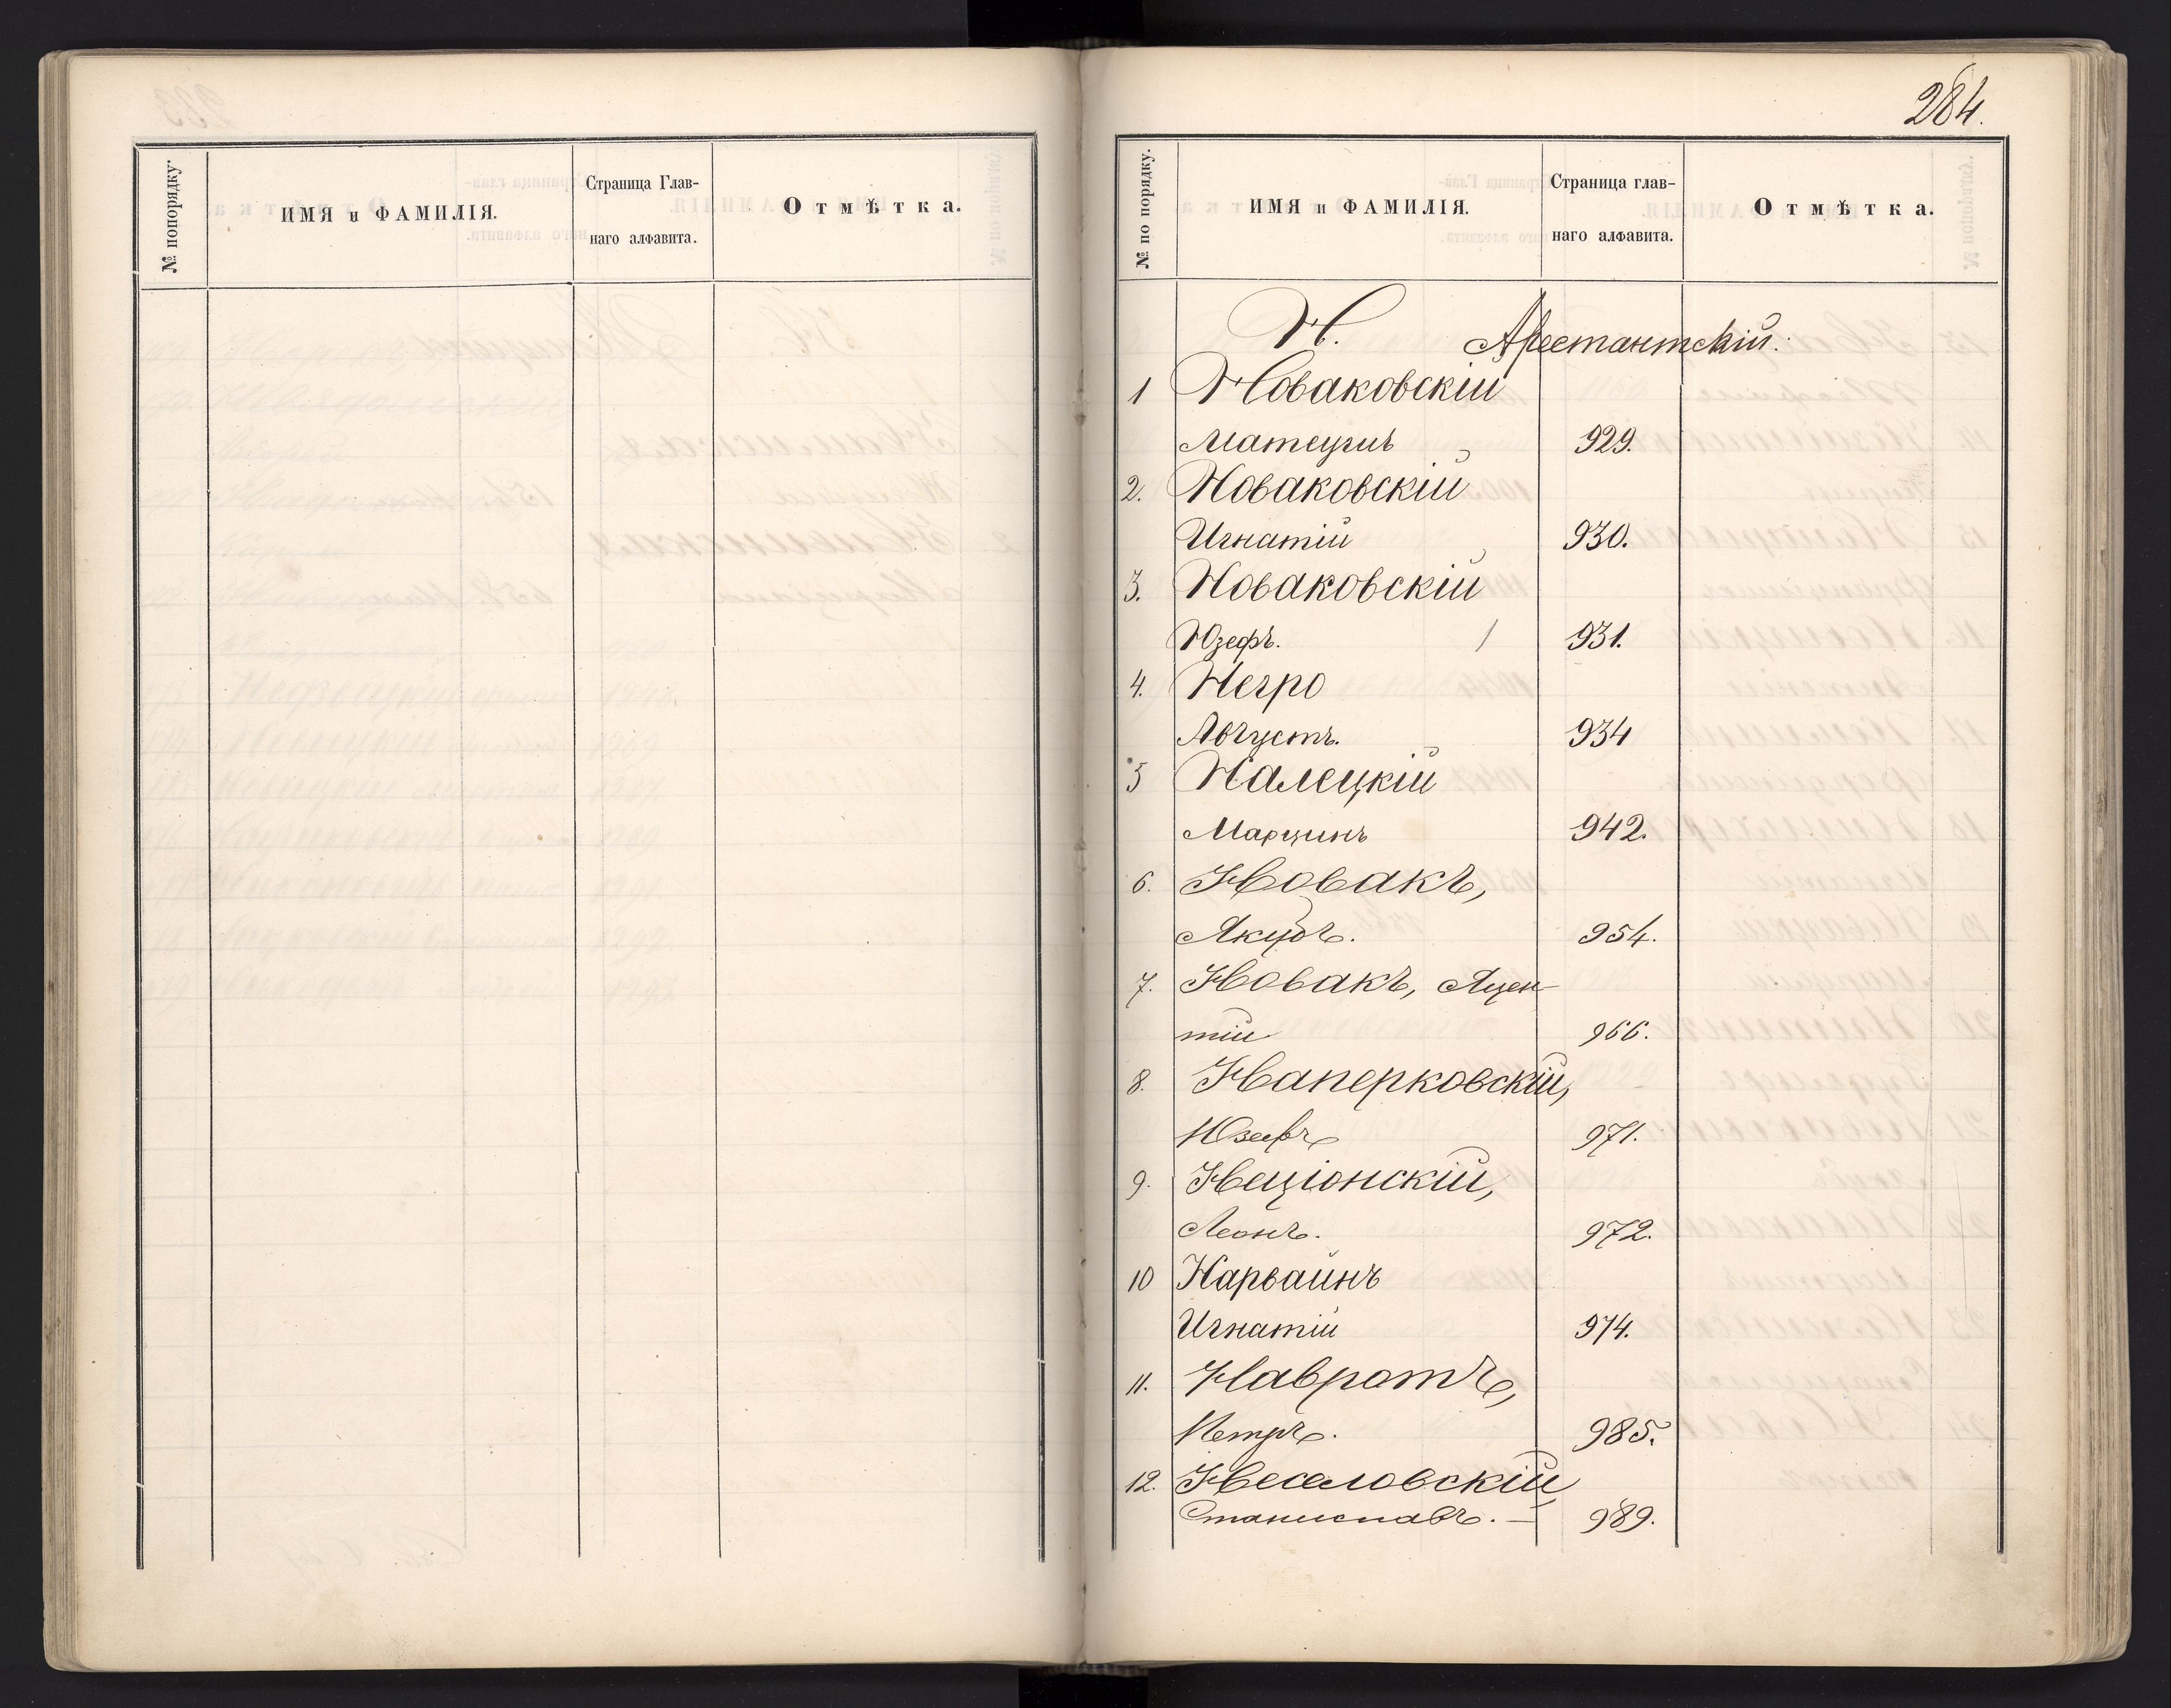 № попорядку.
ИМЯ и ФАМИЛІЯ.
Страница Глав-
наго алфавита.
Отмѣтка.
284.
№ по порядку.
ИМЯ и ФАМИЛІЯ.
Страница глав-
наго алфавита.
Отмѣтка.
Н. Арестантскій.
1 Новаковскій
Матеушъ 929.
2. Новаковскій
Игнатій 930.
3. Новаковскій
Юзефъ. / 931.
4. Негро
Августъ. 934
5 Налецкій
Марцинъ 942.
6. Новакъ,
Якубъ. 954.
7. Новакъ, Яцен-
тій 966.
8. Наперковскій,
Юзефъ 971.
9. Неціонскій,
Леонъ. 972.
10 Нарвайнъ
Игнатій 974.
11. Навротъ,
Петръ. 985.
12. Неселовскій
Станиславъ. — 989.